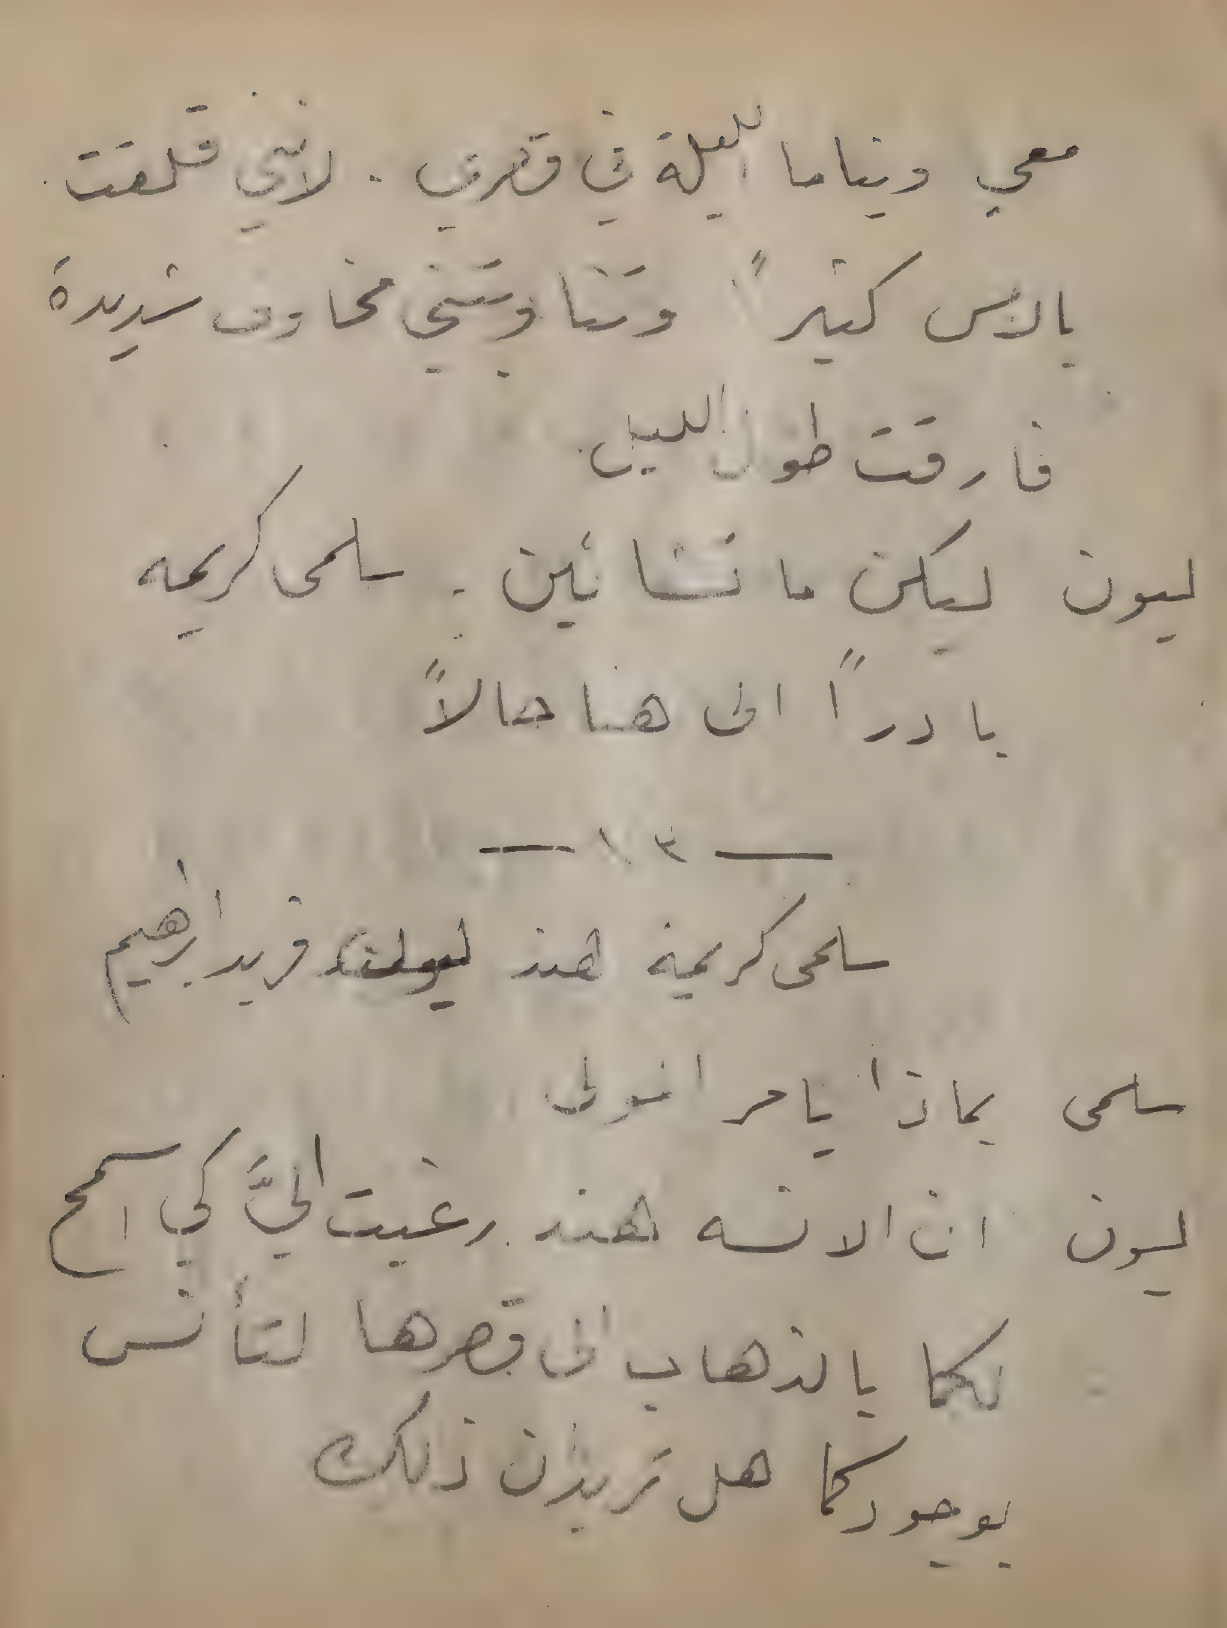 معي ويناما الليلة في قصري . لانني قلقت
بالامس كثيراً وتناوبتني مخاوف شديدة
فارقت طول الليل
ليون ليكن ما تشائين . سلمى كريمه
بادرا الى هنا حالاً
— ١٣ —
سلمى كريمة هند فريد ابراهيم
سلمى بماذا يامر المولى
ليون ان الانسه هند رغبت اليَّ كي اسمح
لكما بالذهاب الى قصرها لتأنس
بوجودكما هل تريدان ذلك